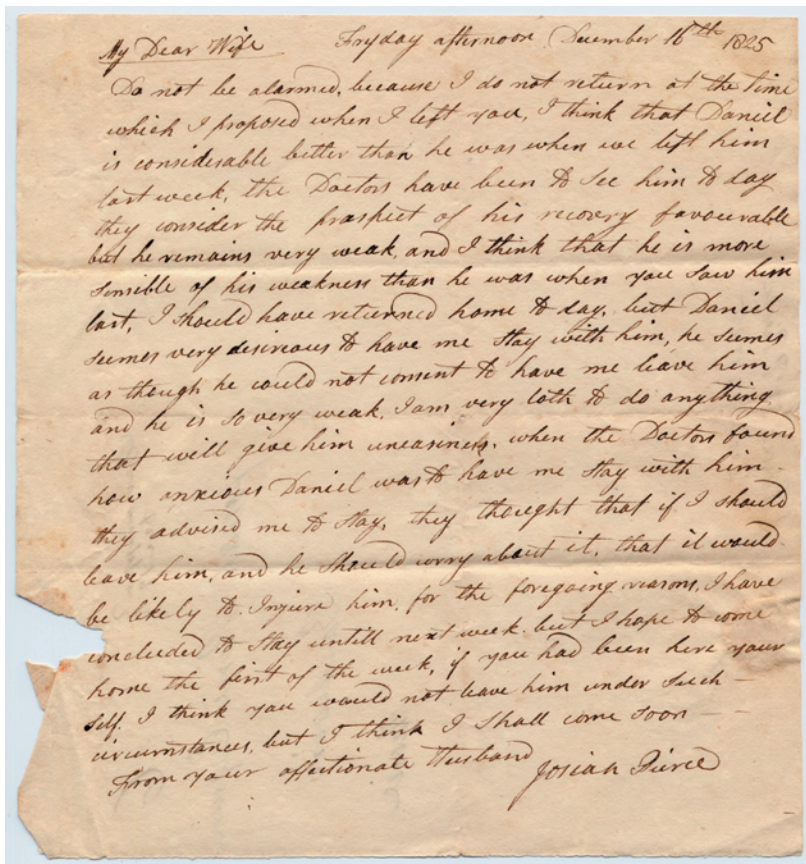 My Dear Wife Fryday afternoon December 16th 1825
Do not be alarmed, because I do not return at the time
which I proposed when I left you, I think that Daniel
is considerable better than he was when we left him
last week, the Doctors have been to see him to day
they consider the prospect of his recovry favourable
but he remains very weak, and I think that he is more
sensible of his weakness than he was when you saw him
last, I should have returned home to day, but Daniel
seemes very desireous to have me stay with him, he seemes
as though he could not consent to have me leave him
and he is so very weak, I am very loth to do anything
that will give him uneasiness, when the Doctors found
how anxious Daniel was to have me stay with him
they advised me to stay, they thought that if I should
leave him, and he should worry about it, that it would
be likely to Injure him, for the foregoing reasons, I have
concluded to stay untill next week. but I hope to come
home the first of the week, if you had been here your
self. I think you would not leave him under such
circumstances, but I think I shall come soon
From your affectionate Husband
Josiah Pierce